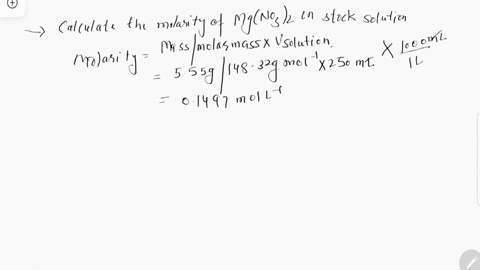 → Calculate the molarity of Mg(NO3)2 in stock solution
Molarity = Mass/molar mass x Vsolution
= 5.55g/148.32g mol⁻¹ x 250 mL x 1000mL/1L
= 0.1497 mol L⁻¹